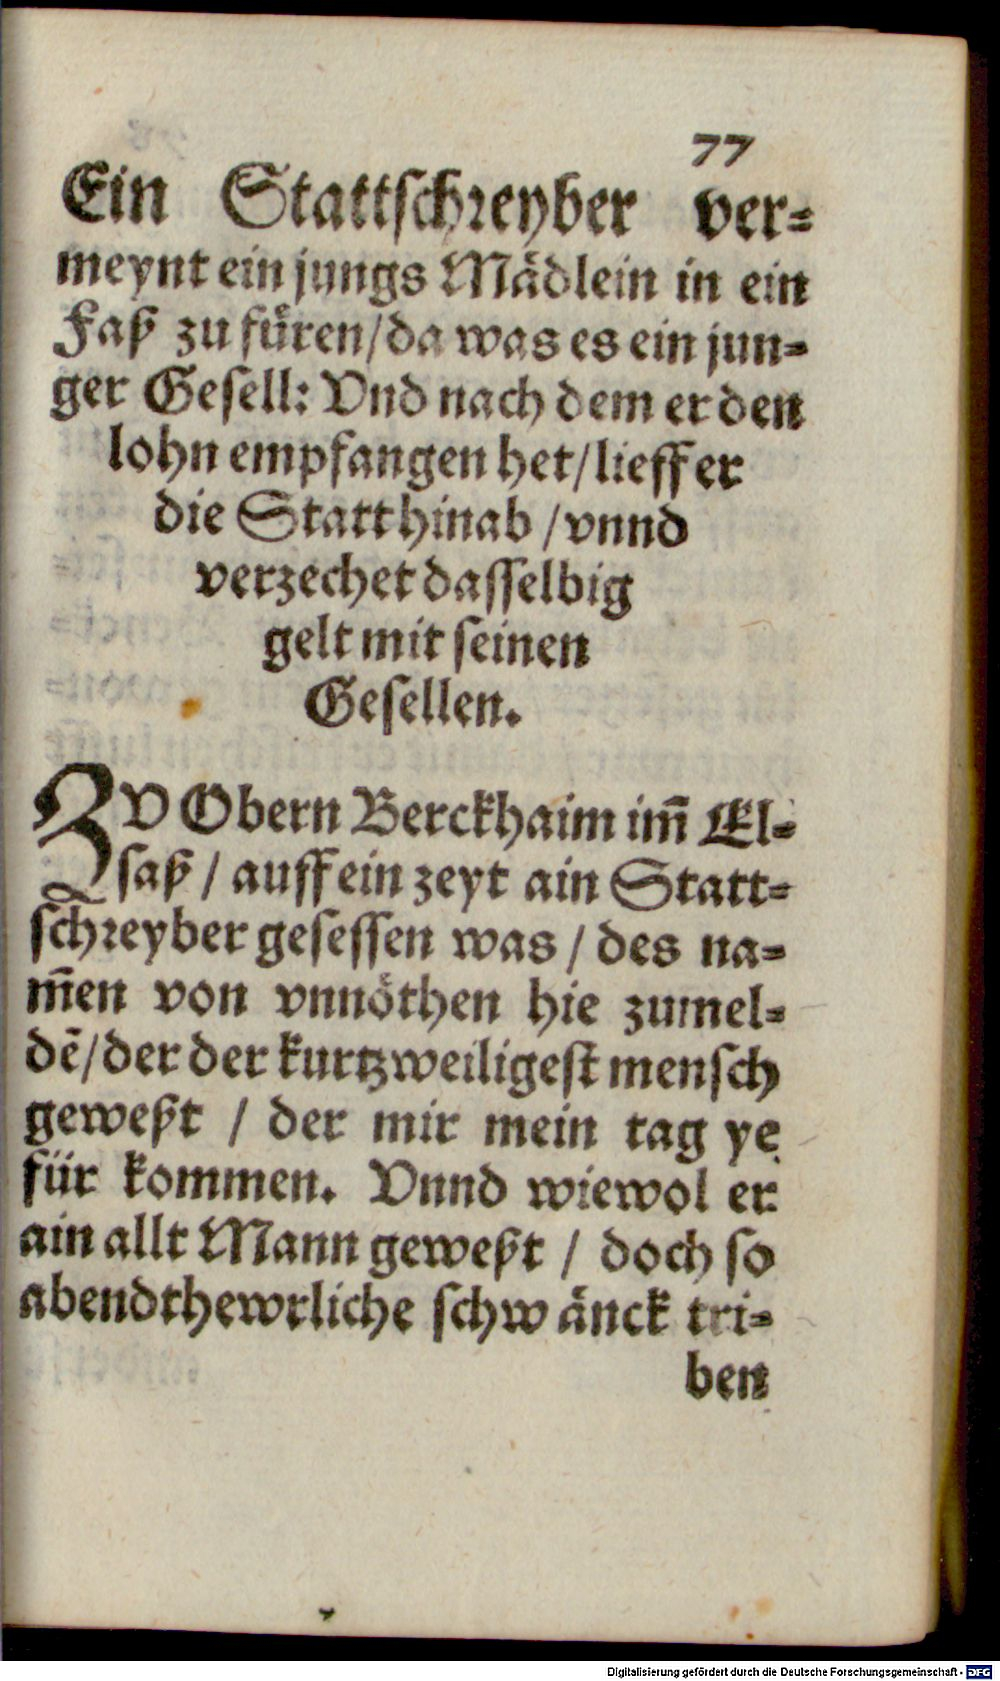 77
Ein Stattschreyber ver-
meynt ein jungs Mädlein in ein
Faß zu füren/da was es ein jun-
ger Gesell: Vnd nach dem er den
lohn empfangen het/lieff er
die Statt hinab / vnnd
verzechet dasselbig
gelt mit seinen
Gesellen.
ZV Obern Berckhaim im̄ El-
saß / auff ein zeyt ain Statt-
schreyber gesessen was / des na-
m̄en von vnnöthen hie zumel-
dē/der der kurtzweiligest mensch
geweßt / der mir mein tag ye
für kommen. Vnnd wiewol er
ain allt Mann geweßt / doch so
abendthewrliche schwänck tri-
ben
Digitalisierung gefördert durch die Deutsche Forschungsgemeinschaft - DFG